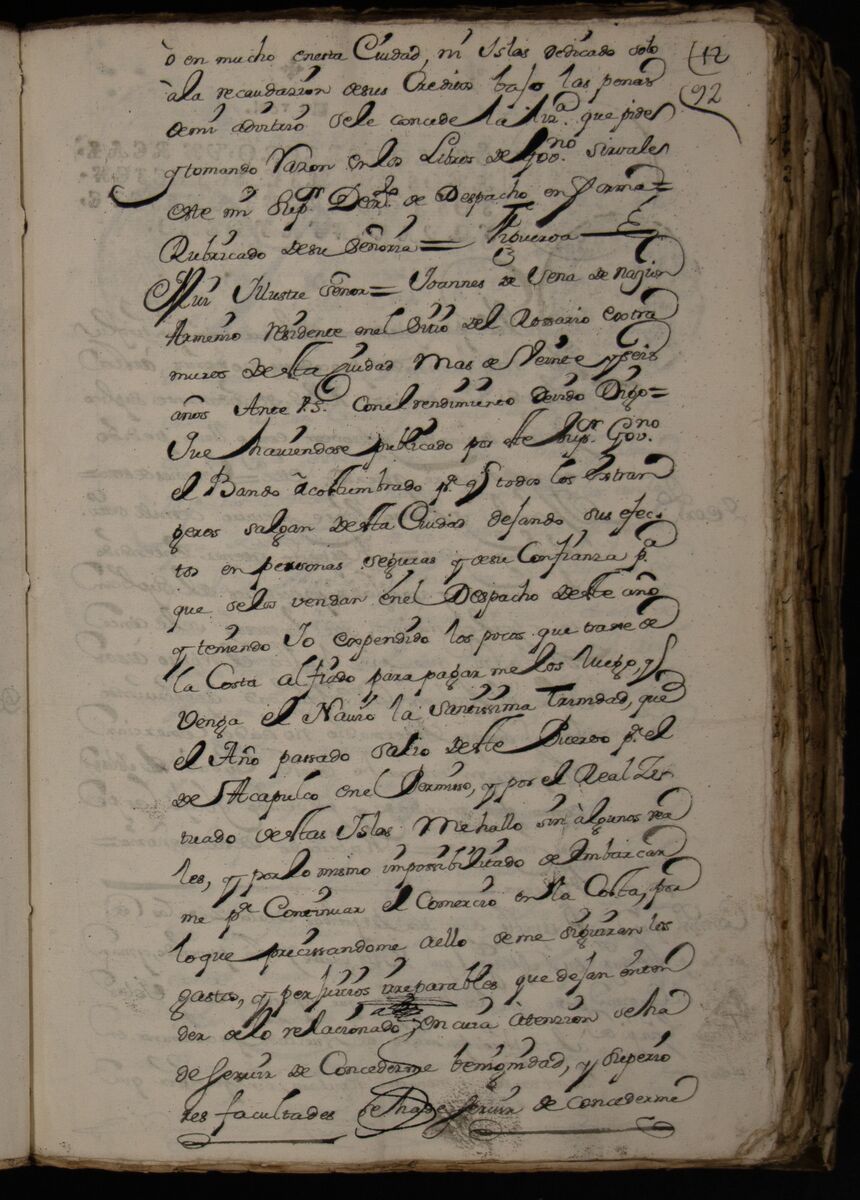 ò en mucho enesta Ciudad, ni Islas dedicado solo
à la recaudazion desus Creditos bajo las penas
demi advitrio sele concede la liz.ª que pide
y tomando Razon en los Libros de Gov.no sirvale
este mi Sup.r Decr.to de Despacho en forma=
Rubricado desu Señoria= Figueroa
Mui Illustre Señor= Joannes de Sena de nazion
Armenio residente enel Sitio del Rossario extra
muros desta Ciudad mas de Veinte y seis
años Ante V.S. Conel rendimiento devido Digo=
Que haviendose publicado por este Sup.r Gov.no
el Bando acostumbrado p.ª q̃ todos los extran
geros salgan desta Ciudad dejando sus efec-
tos en personas seguras y desu Confianza p.ª
que selos vendan enel Despacho deste año
y teniendo Yo expendido los pocos que traxe de
la Costa al fiado para pagarmelos luego q̃
venga el Navio la Santissima Trinidad, que
el Año passado salio deste Puerto p.ª el
de Acapulco enel Permiso, y por el Real Zi-
tuado destas Islas me hallo sin algunos rea
les, y por lo mismo impossibilitado de embarcar
me p.ª Continuar el Comercio en la Costa, por
lo que precissandome aello se me seguiran los
gastos, y perjuicios irreparables que dejan enten
der delo relacionado en cuia atenzion se ha
de servir de Concederme benignidad, y superio
res facultades se hade servir de concederme
12
92